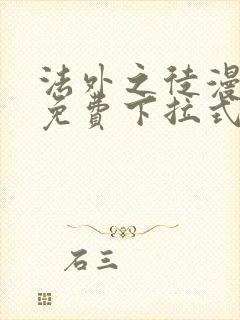 法外之徒漫
免費下拉式
石三